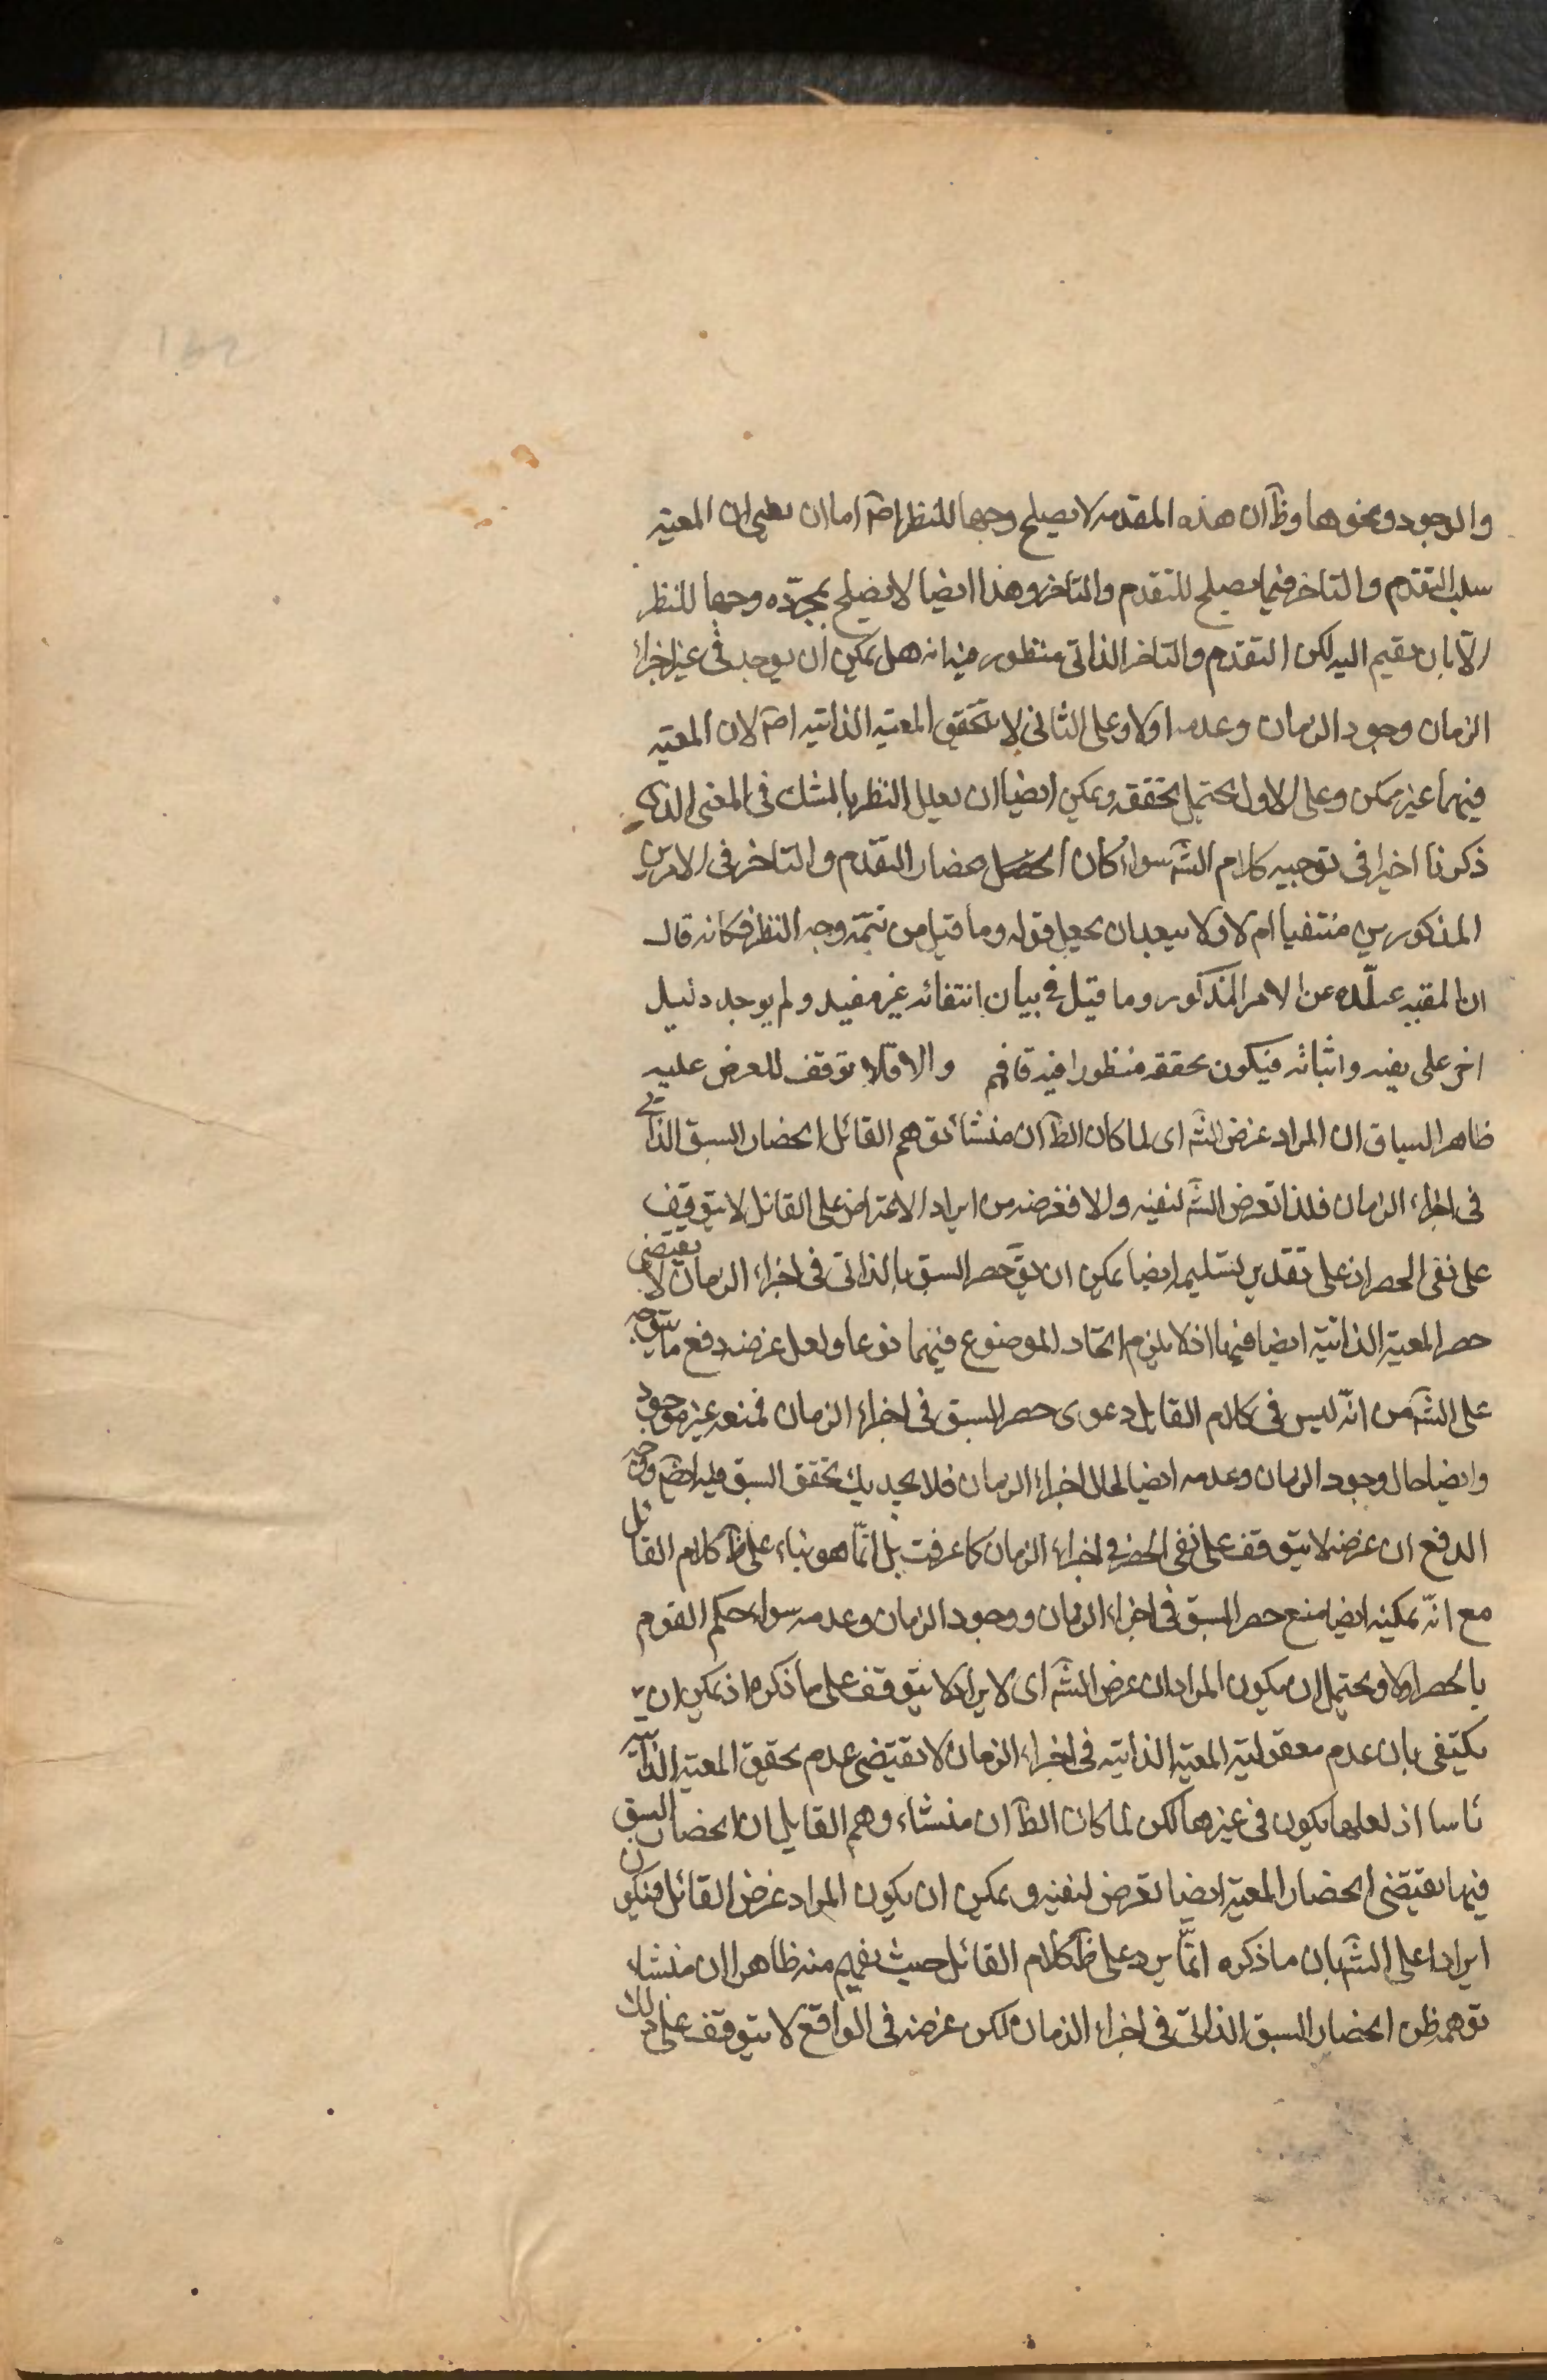 والوجود ونحوها وظآ ان هذه المقدمه لا يصلح وجها للنظر اصآ اما ان يعنى ان المعيه
سلب التقدم والتاخر فيما يصلح للتقدم والتاخر وهذا ايضا لا يصلح بمجرّده وجها للنظر
الّا بان يقيم اليه لكن التقدّم والتاخر الذاتى منظور فيه انه هل يمكن ان يوجد فى غير اجزاء
الزمان وجود الزمان وعدمه اولا وعلى الثانى لا يتحقق المعيه الذاتيه اصآ لان المعيه
فيهما غير ممكن وعلى الاول يحتمل تحققه ويمكن ايضا ان يعلل النظر بالشك فى المعنى الذى
ذكرنا اخيرا فى توجيه كلام الشآ سواء كان انحصار التقدم والتاخر فى الامرين
المذكورين منتفيا ام لا ولا يبعد ان يجعل قوله وما قيل من تتمّه وجه النظر فكانه قال
ان المقيه عـلّده عن الامر المذكور وما قيل فى بيان انتفائه غير مفيد ولم يوجد دليل
اخر على نفيه واثباته فيكون تحققه منظورا فيه فافهم والا فلا توقف للغرض عليه
ظاهر السياق ان المراد غرض الشآ اى لما كان الظآ ان منشأ توهم القائل انحصار السبق الذاتى
فى اجزاء الزمان فلذا تعرض الشآ لنفيه والا فغرضه من ايراد الاعتراض على القائل لا يتوقف
على نفى الحصر اذ على تقدير تسليمه ايضا يمكن ان يقآ حصر السبق بالذاتى فى اجزاء الزمان لا يقتضى
حصر المعية الذاتيّه ايضا فيها اذ لا يلزم اتحاد الموضوع فيهما نوعا ولعل غرضه دفع ما يتوجه
على الشآ من انّه ليس فى كلام القايل دعوى حصر السبق فى اجزاء الزمان فمنعه غير موجود
وايضا حال وجود الزمان وعدمه ايضا كحال اجزاء الزمان فلا يجديك تحقق السبق فيه ايضآ وجه
الدفع ان غرضه لا يتوقف على نفى الحصر فى اجزاء الزمان كما عرفت بل انّما هو بناء على ظآ كلام القائل
مع انّه يمكنه ايضا منع حصر السبق فى اجزاء الزمان ووجود الزمان وعدمه سواء حكم القوم
بالحصر اولا ويحتمل ان يكون المراد ان غرض الشآ اى لايراد لا يتوقف على ما ذكره اذ يمكن ان
يكتفى بان عدم معقوليّه المعيه الذاتيه فى اجزاء الزمان لا يقتضى عدم تحقيق المعيه الذاتيه
راسا اذ لعلها يكون فى غيرها لكن لما كان الظآ ان منشاء وهم القايل ان انحصار السبق
فيها يقتضى انحصار المعيّه ايضا تعرض لنفيه ويمكن ان يكون المراد غرض القائل فيكون
ايرادا على الشآ بان ما ذكره انّما يرد على ظآ كلام القائل حيث يفهم منه ظاهرا ان منشاء
توهمه ظن انحصار السبق الذاتى فى اجزاء الزمان لكن غرضه فى الواقع لا يتوقف على ذلك